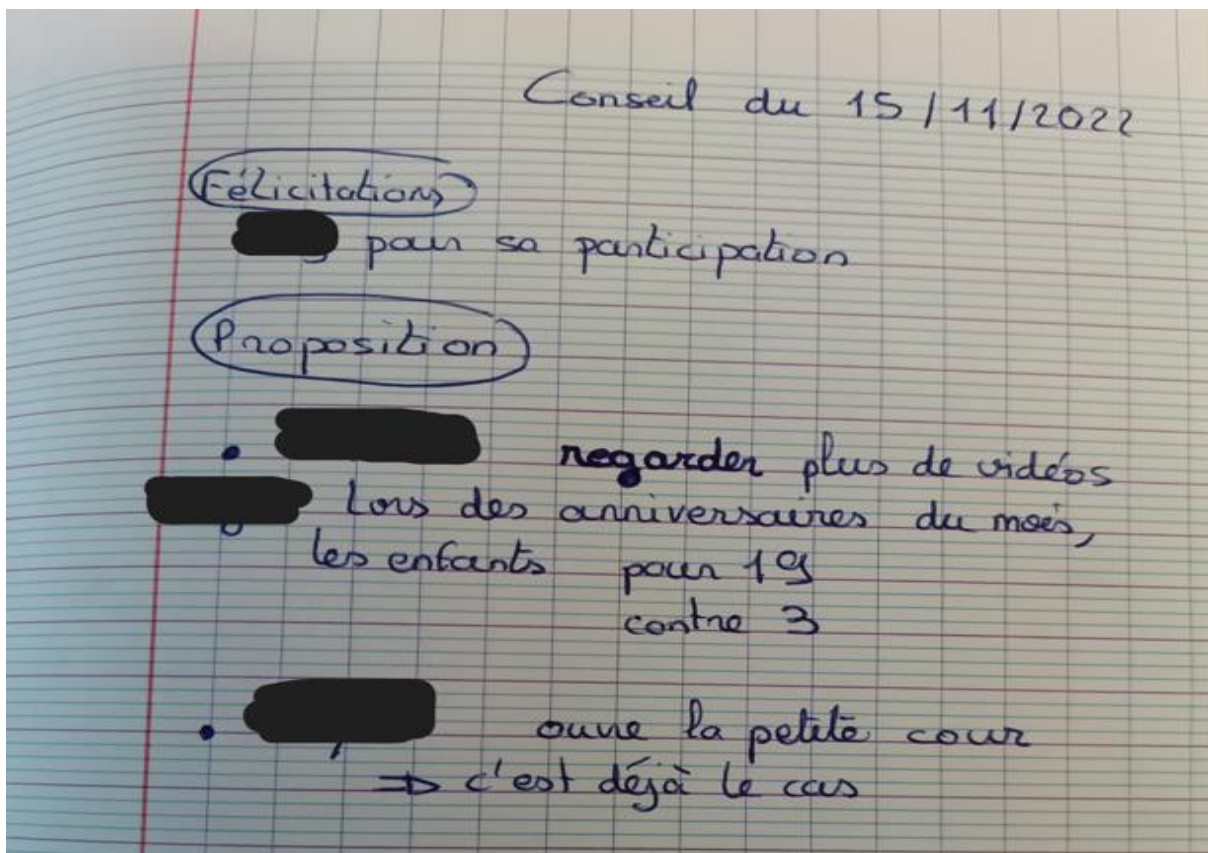 Conseil du 15/11/2022
Félicitations
pour sa participation
Proposition
• regarder plus de vidéos
Lors des anniversaires du mois,
les enfants pour 19
contre 3
• ouvre la petite cour
⇒ c'est déjà le cas